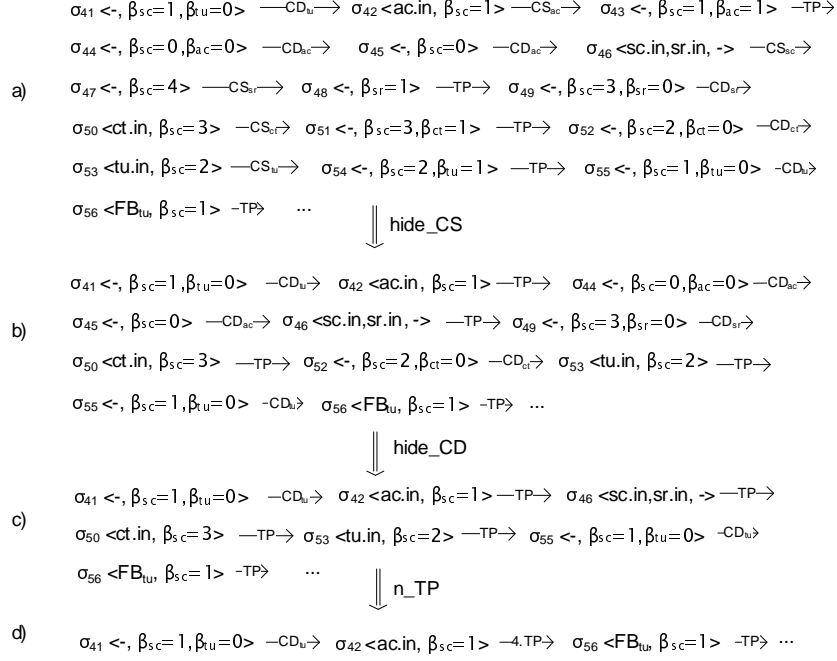 σ41 <-, βsc=1,βtu=0> —CDtu→ σ42 <ac.in, βsc=1> —CSac→ σ43 <-, βsc=1,βac=1> –TP→
σ44 <-, βsc=0,βac=0> —CDac→ σ45 <-, βsc=0> —CDac→ σ46 <sc.in,sr.in, -> —CSsc→
a) σ47 <-, βsc=4> —CSsr→ σ48 <-, βsr=1> —TP→ σ49 <-, βsc=3,βsr=0> –CDsr→
σ50 <ct.in, βsc=3> –CSct→ σ51 <-, βsc=3,βct=1> —TP→ σ52 <-, βsc=2,βct=0> –CDct→
σ53 <tu.in, βsc=2> —CStu→ σ54 <-, βsc=2,βtu=1> —TP→ σ55 <-, βsc=1,βtu=0> -CDtu→
σ56 <FBtu, βsc=1> –TP→ ...
hide_CS
σ41 <-, βsc=1,βtu=0> –CDtu→ σ42 <ac.in, βsc=1> —TP→ σ44 <-, βsc=0,βac=0> —CDac→
b) σ45 <-, βsc=0> —CDac→ σ46 <sc.in,sr.in, -> —TP→ σ49 <-, βsc=3,βsr=0> —CDsr→
σ50 <ct.in, βsc=3> —TP→ σ52 <-, βsc=2,βct=0> –CDct→ σ53 <tu.in, βsc=2> —TP→
σ55 <-, βsc=1,βtu=0> -CDtu→ σ56 <FBtu, βsc=1> –TP→ ...
hide_CD
σ41 <-, βsc=1,βtu=0> –CDtu→ σ42 <ac.in, βsc=1> —TP→ σ46 <sc.in,sr.in, -> —TP→
c) σ50 <ct.in, βsc=3> —TP→ σ53 <tu.in, βsc=2> —TP→ σ55 <-, βsc=1,βtu=0> -CDtu→
σ56 <FBtu, βsc=1> –TP→ ...
n_TP
d) σ41 <-, βsc=1,βtu=0> –CDtu→ σ42 <ac.in, βsc=1> –4.TP→ σ56 <FBtu, βsc=1> –TP→ ...